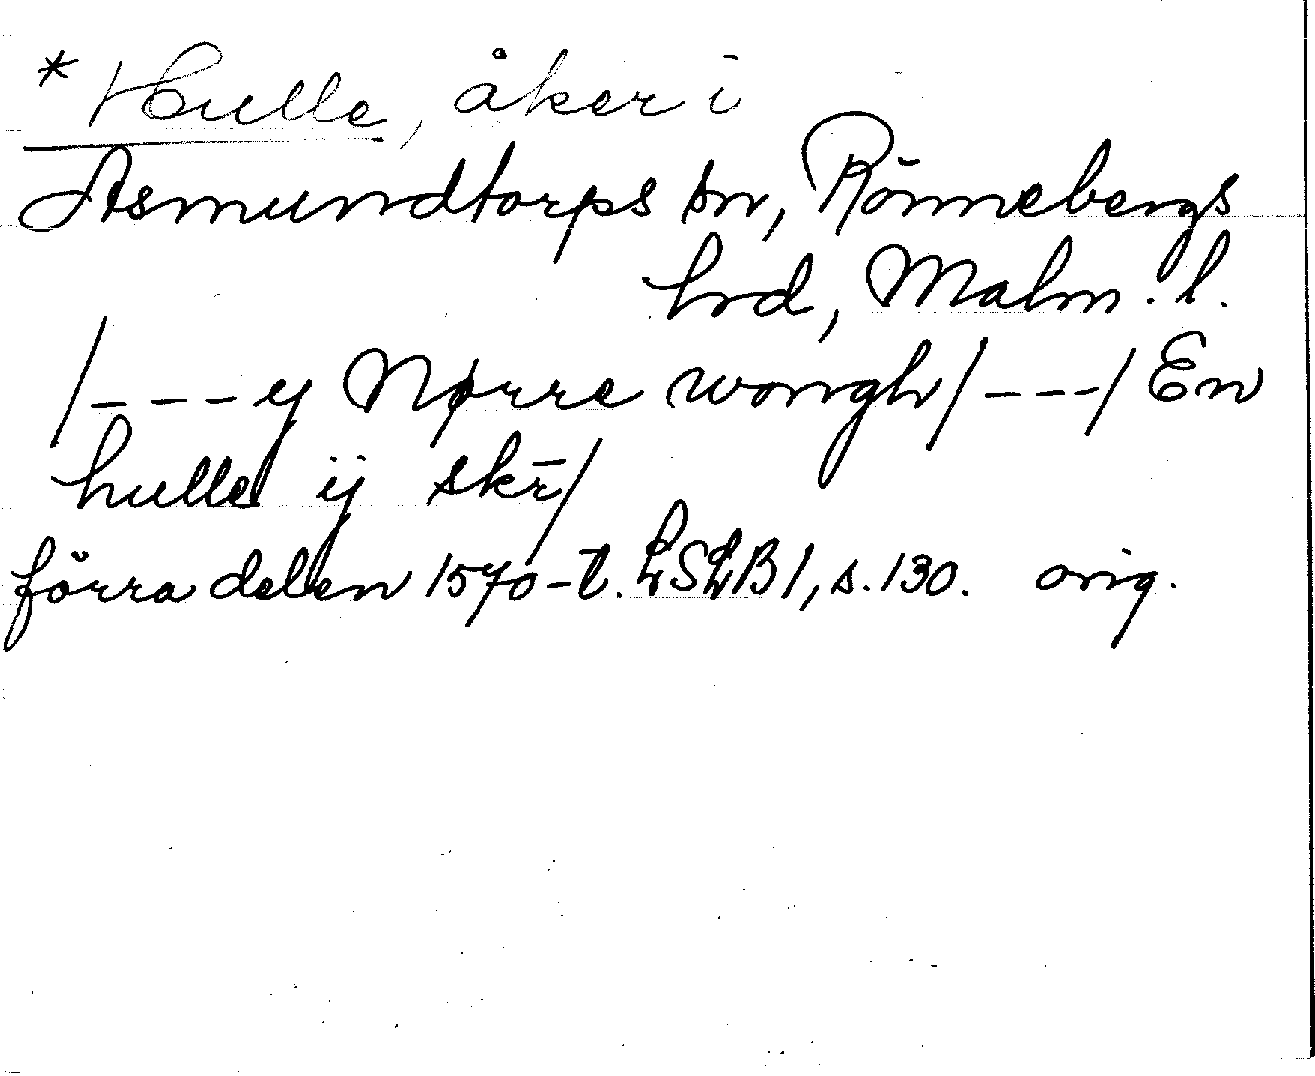 * Hulle, åker i
Asmundtorps sn, Rönnebergs
hrd, Malm. l.
/---y Nørre wongh/---/ En
hulle ij skr̄/
förra delen 1570-t. LSLB 1, s. 130. orig.